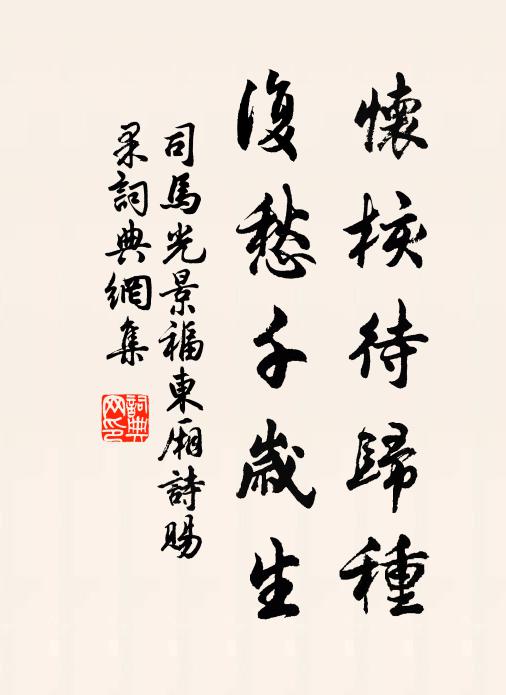 懷核待歸種
復愁千歲生
司馬光景福東廂詩賜
果詞典網集
詞典
网印